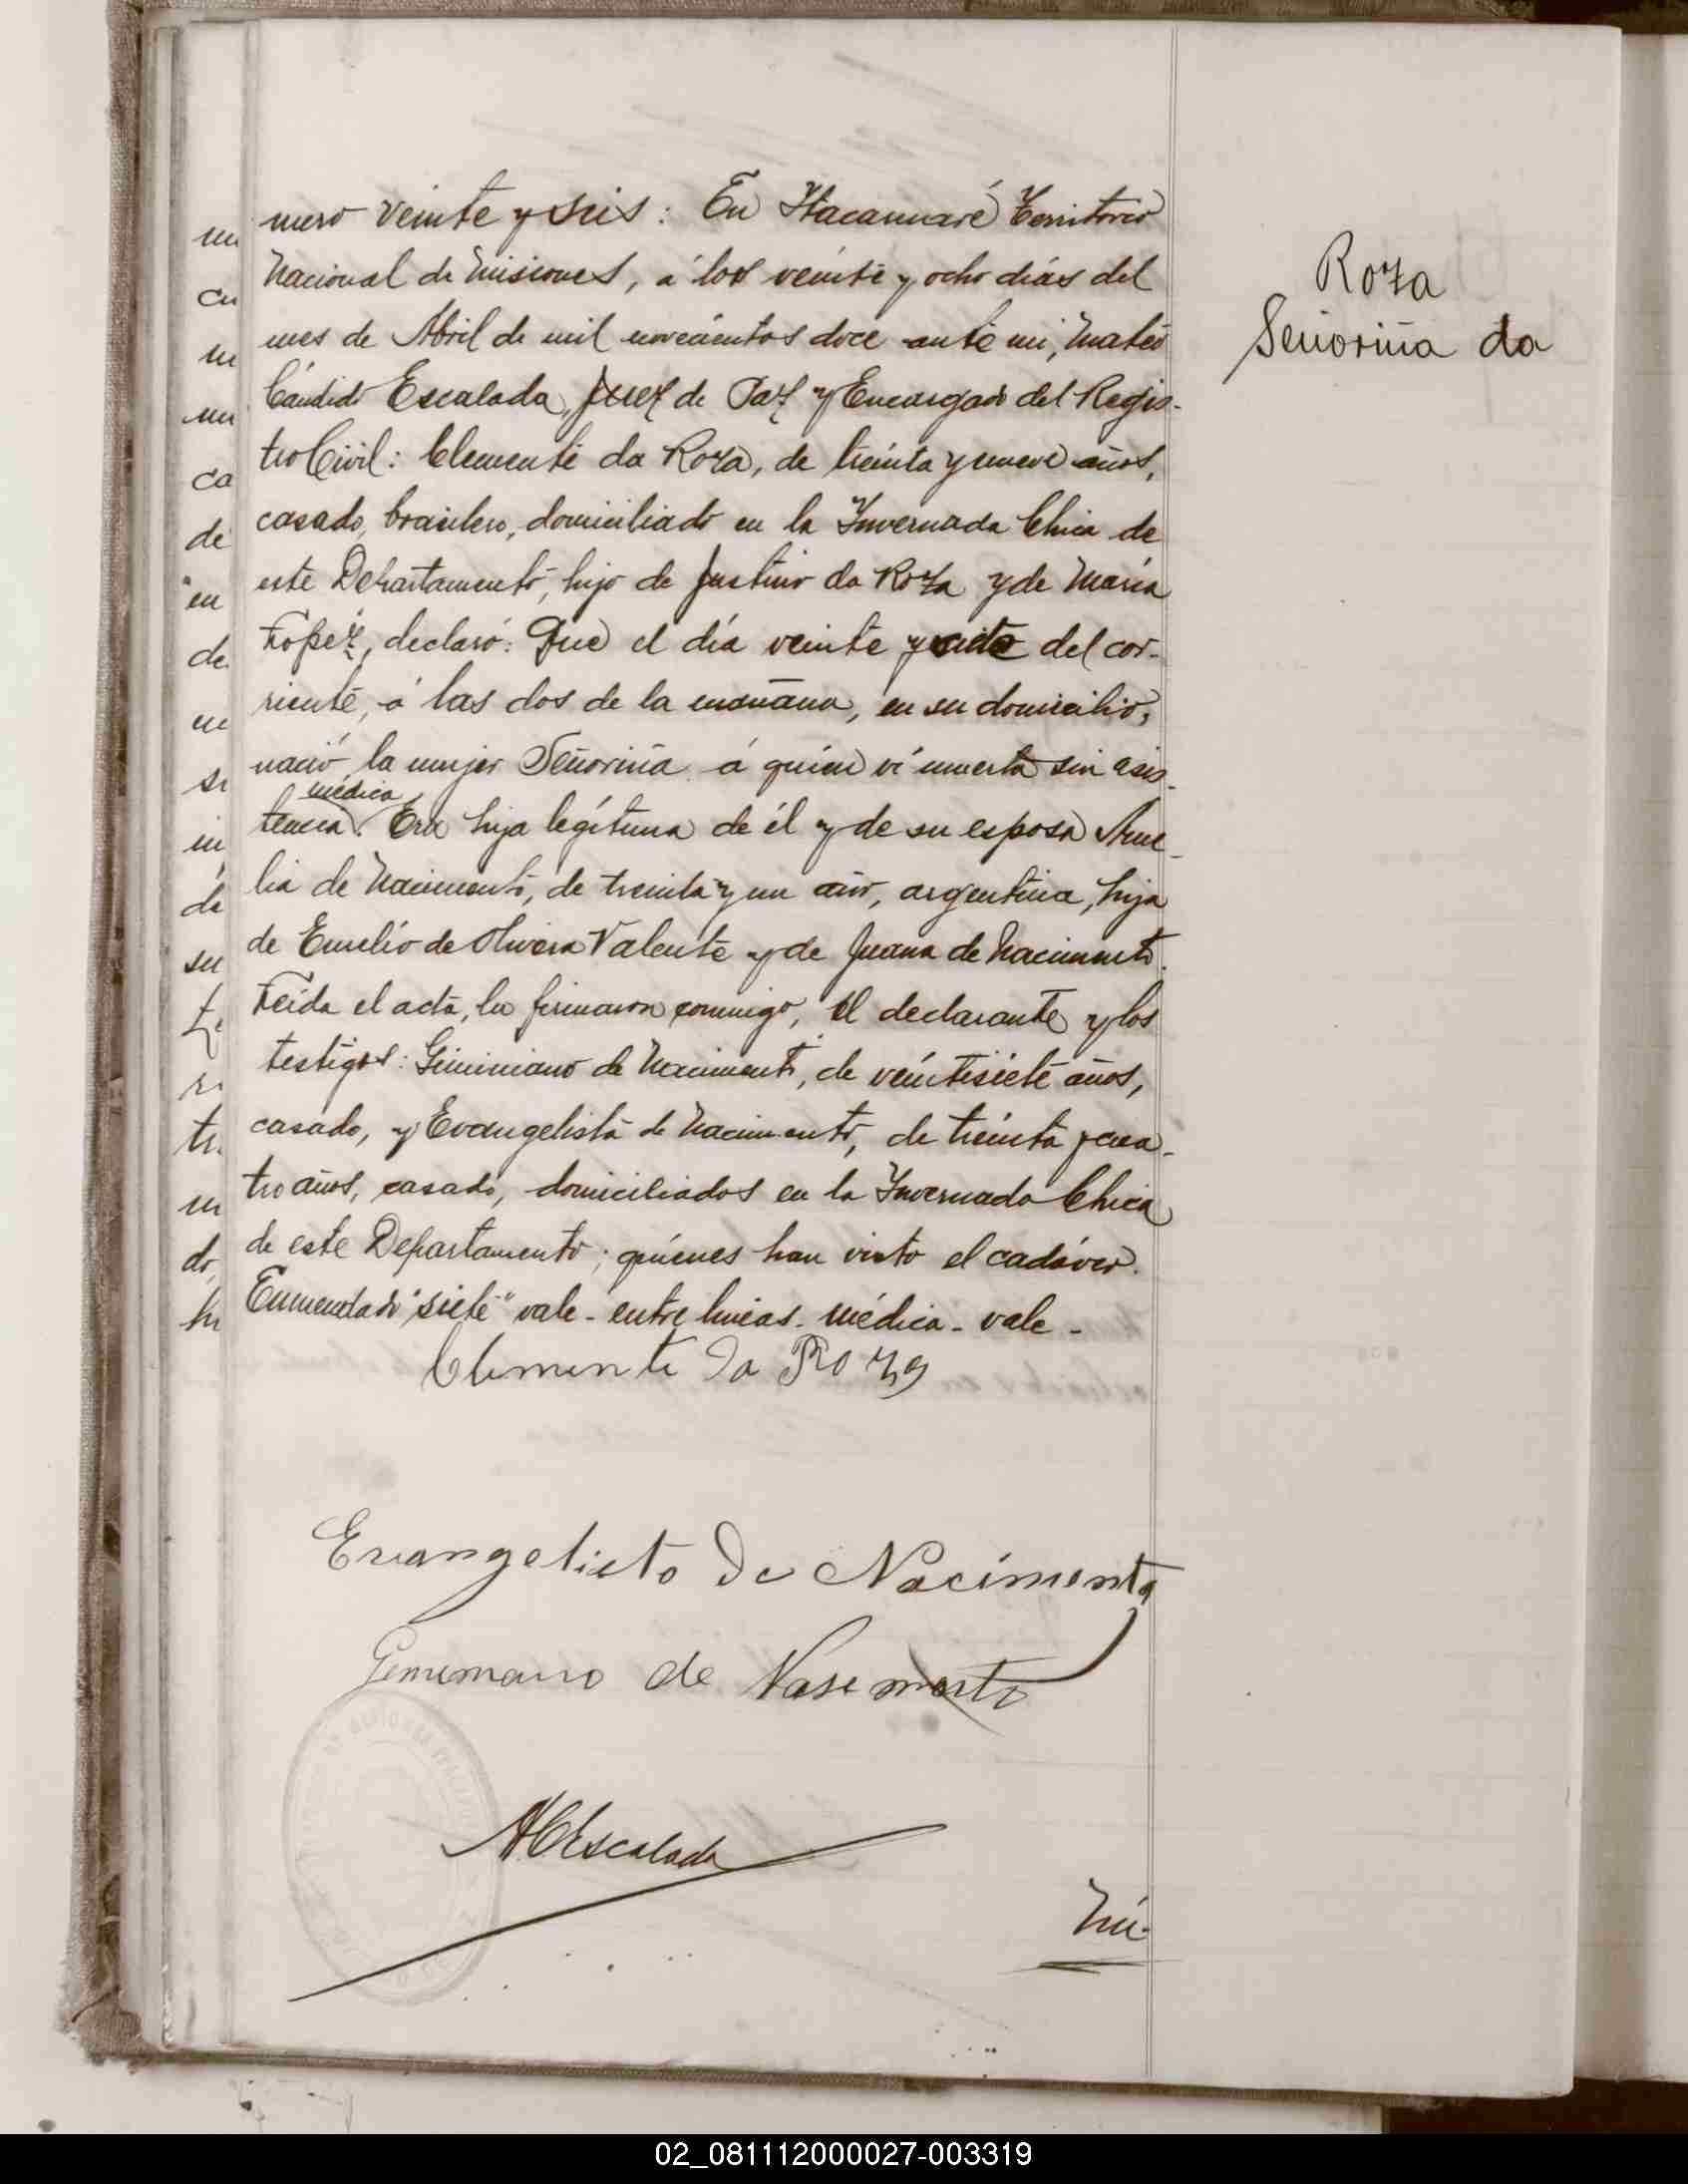 mero veinte y seis: En Itacaruaré Territorio
Nacional de Misiones, á los veinte y ocho dias del
mes de Abril de mil novecientos doce ante mi, Mateo
Cándido Escalada, Juez de Paz y Encargado del Regis-
tro Civil: Clemente da Roza, de treinta y nueve años,
casado, brasilero, domiciliado en la Invernada Chica de
este Departamento, hijo de Justino da Roza y de María
Lopez, declaró: Que el día veinte y siete del cor-
riente, á las dos de la mañana, en su domicilio,
nació la mujer Señoriña á quien ví muerta sin asis-
médica
tencia. Era hija legítima de él y de su esposa Ame-
lia de Nacimento, de treinta y un año, argentina, hija
de Emelío de Olivera Valente y de Juana de Nacimento.
Leida el acta, la firmaron conmigo, el declarante y los
testigos: Giminiano de Nacimento, de veintisiete años,
casado, y Evangelista de Nacimento, de treinta y cua-
tro años, casado, domiciliados en la Invernada Chica
de este Departamento; quienes han visto el cadáver.
Enmendado "siete" vale - entre lineas - médica - vale -
Clemente da Roza
Evangelisto de Nacimento
Geminiano de Nasemento
MCEscalada
Nú-
Roza
Señoriña da
un
cu
m
un
ca
de
en
de
en
si
in
da
su
Le
ri
tr
un
do,
hi
02_081112000027-003319